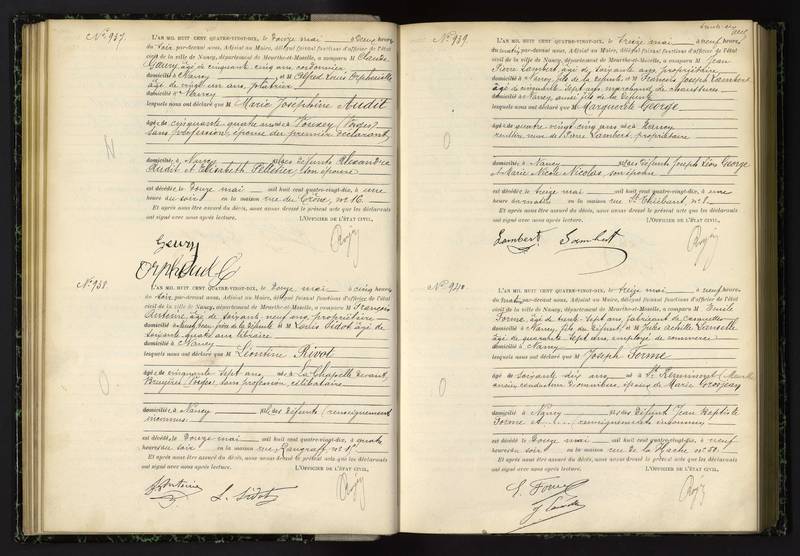 N° 937.
L'AN MIL HUIT CENT QUATRE-VINGT-DIX, le douze mai à deux heures
du soir, par-devant nous, Adjoint au Maire, délégué faisant fonctions d'officier de l'état
civil de la ville de Nancy, département de Meurthe-et-Moselle, a comparu M Claude
Geury, âgé de cinquante cinq ans, cordonnier
domicilié à Nancy et M Alfred Louis
âgé de vingt un ans,
domicilié à Nancy
lesquels nous ont déclaré que M Marie Joséphine Audit
âgée de cinquante quatre ans née à (Vosges)
sans profession, épouse du premier déclarant,
domiciliée à Nancy fille des défunts Alexandre
Audit et Elisabeth Pelletier, son épouse
est décédée, le douze mai mil huit cent quatre-vingt-dix, à une
heure du soir en la maison rue du Crosne, n° 16.
Et après nous être assuré du décès, nous avons dressé le présent acte que les déclarants
ont signé avec nous après lecture. L'OFFICIER DE L'ÉTAT CIVIL,
Geury
N
N° 938
L'AN MIL HUIT CENT QUATRE-VINGT-DIX, le douze mai à cinq heures
du soir, par-devant nous, Adjoint au Maire, délégué faisant fonctions d'officier de l'état
civil de la ville de Nancy, département de Meurthe-et-Moselle, a comparu M François
Antoine, âgé de soixante neuf ans, propriétaire
domicilié à et M Louis Sidot âgé de
soixante quatre ans libraire
domicilié à Nancy
lesquels nous ont déclaré que M Léontine Rivot
âgée de cinquante sept ans, née à La Chapelle devant
Bruyères Vosges sans profession, célibataire
domiciliée à Nancy fille des défunts (renseignement
inconnus
est décédée le douze mai mil huit cent quatre-vingt-dix, à quatre
heures du soir en la maison rue n° 1
Et après nous être assuré du décès, nous avons dressé le présent acte que les déclarants
ont signé avec nous après lecture. L'OFFICIER DE L'ÉTAT CIVIL,
Antoine L. Sidot
O
N° 939
L'AN MIL HUIT CENT QUATRE-VINGT-DIX, le treize mai à neuf heures
du matin, par-devant nous, Adjoint au Maire, délégué faisant fonctions d'officier de l'état
civil de la ville de Nancy, département de Meurthe-et-Moselle, a comparu M Jean
Pierre Lambert, âgé de soixante ans, propriétaire
domicilié à Nancy, fils de la défunte et M François Joseph Lambert
âgé de cinquante sept ans, marchand de chaussures
domicilié à Nancy, aussi fils de la défunte
lesquels nous ont déclaré que M Marguerite George
âgée de quatre-vingt cinq ans née à Nancy
veuve de Pierre Lambert, propriétaire
domiciliée à Nancy fille des défunts Joseph Léon George
et Marie Nicole Nicolas, son épouse
est décédée, le treize mai mil huit cent quatre-vingt-dix, à une
heure du matin en la maison rue St Thiébaut, n° 1
Et après nous être assuré du décès, nous avons dressé le présent acte que les déclarants
ont signé avec nous après lecture. L'OFFICIER DE L'ÉTAT CIVIL,
Lambert Lambert
O
N° 940
L'AN MIL HUIT CENT QUATRE-VINGT-DIX, le treize mai à neuf heures
du matin, par-devant nous, Adjoint au Maire, délégué faisant fonctions d'officier de l'état
civil de la ville de Nancy, département de Meurthe-et-Moselle, a comparu M Emile
Forme, âgé de trente sept ans, fabricant de casquettes
domicilié à Nancy, fils du défunt et M Jules Achille
âgé de quarante sept ans, employé de commerce
domicilié à Nancy
lesquels nous ont déclaré que M Joseph Forme
âgé de soixante dix ans né à St
ancien conducteur d'omnibus, époux de Marie Grosjean
domicilié à Nancy fils des défunt Jean Baptiste
Forme et (...) renseignements inconnus
est décédé, le douze mai mil huit cent quatre-vingt-dix, à neuf
heures du soir en la maison rue de la Hache n° 50
Et après nous être assuré du décès, nous avons dressé le présent acte que les déclarants
ont signé avec nous après lecture. L'OFFICIER DE L'ÉTAT CIVIL,
O